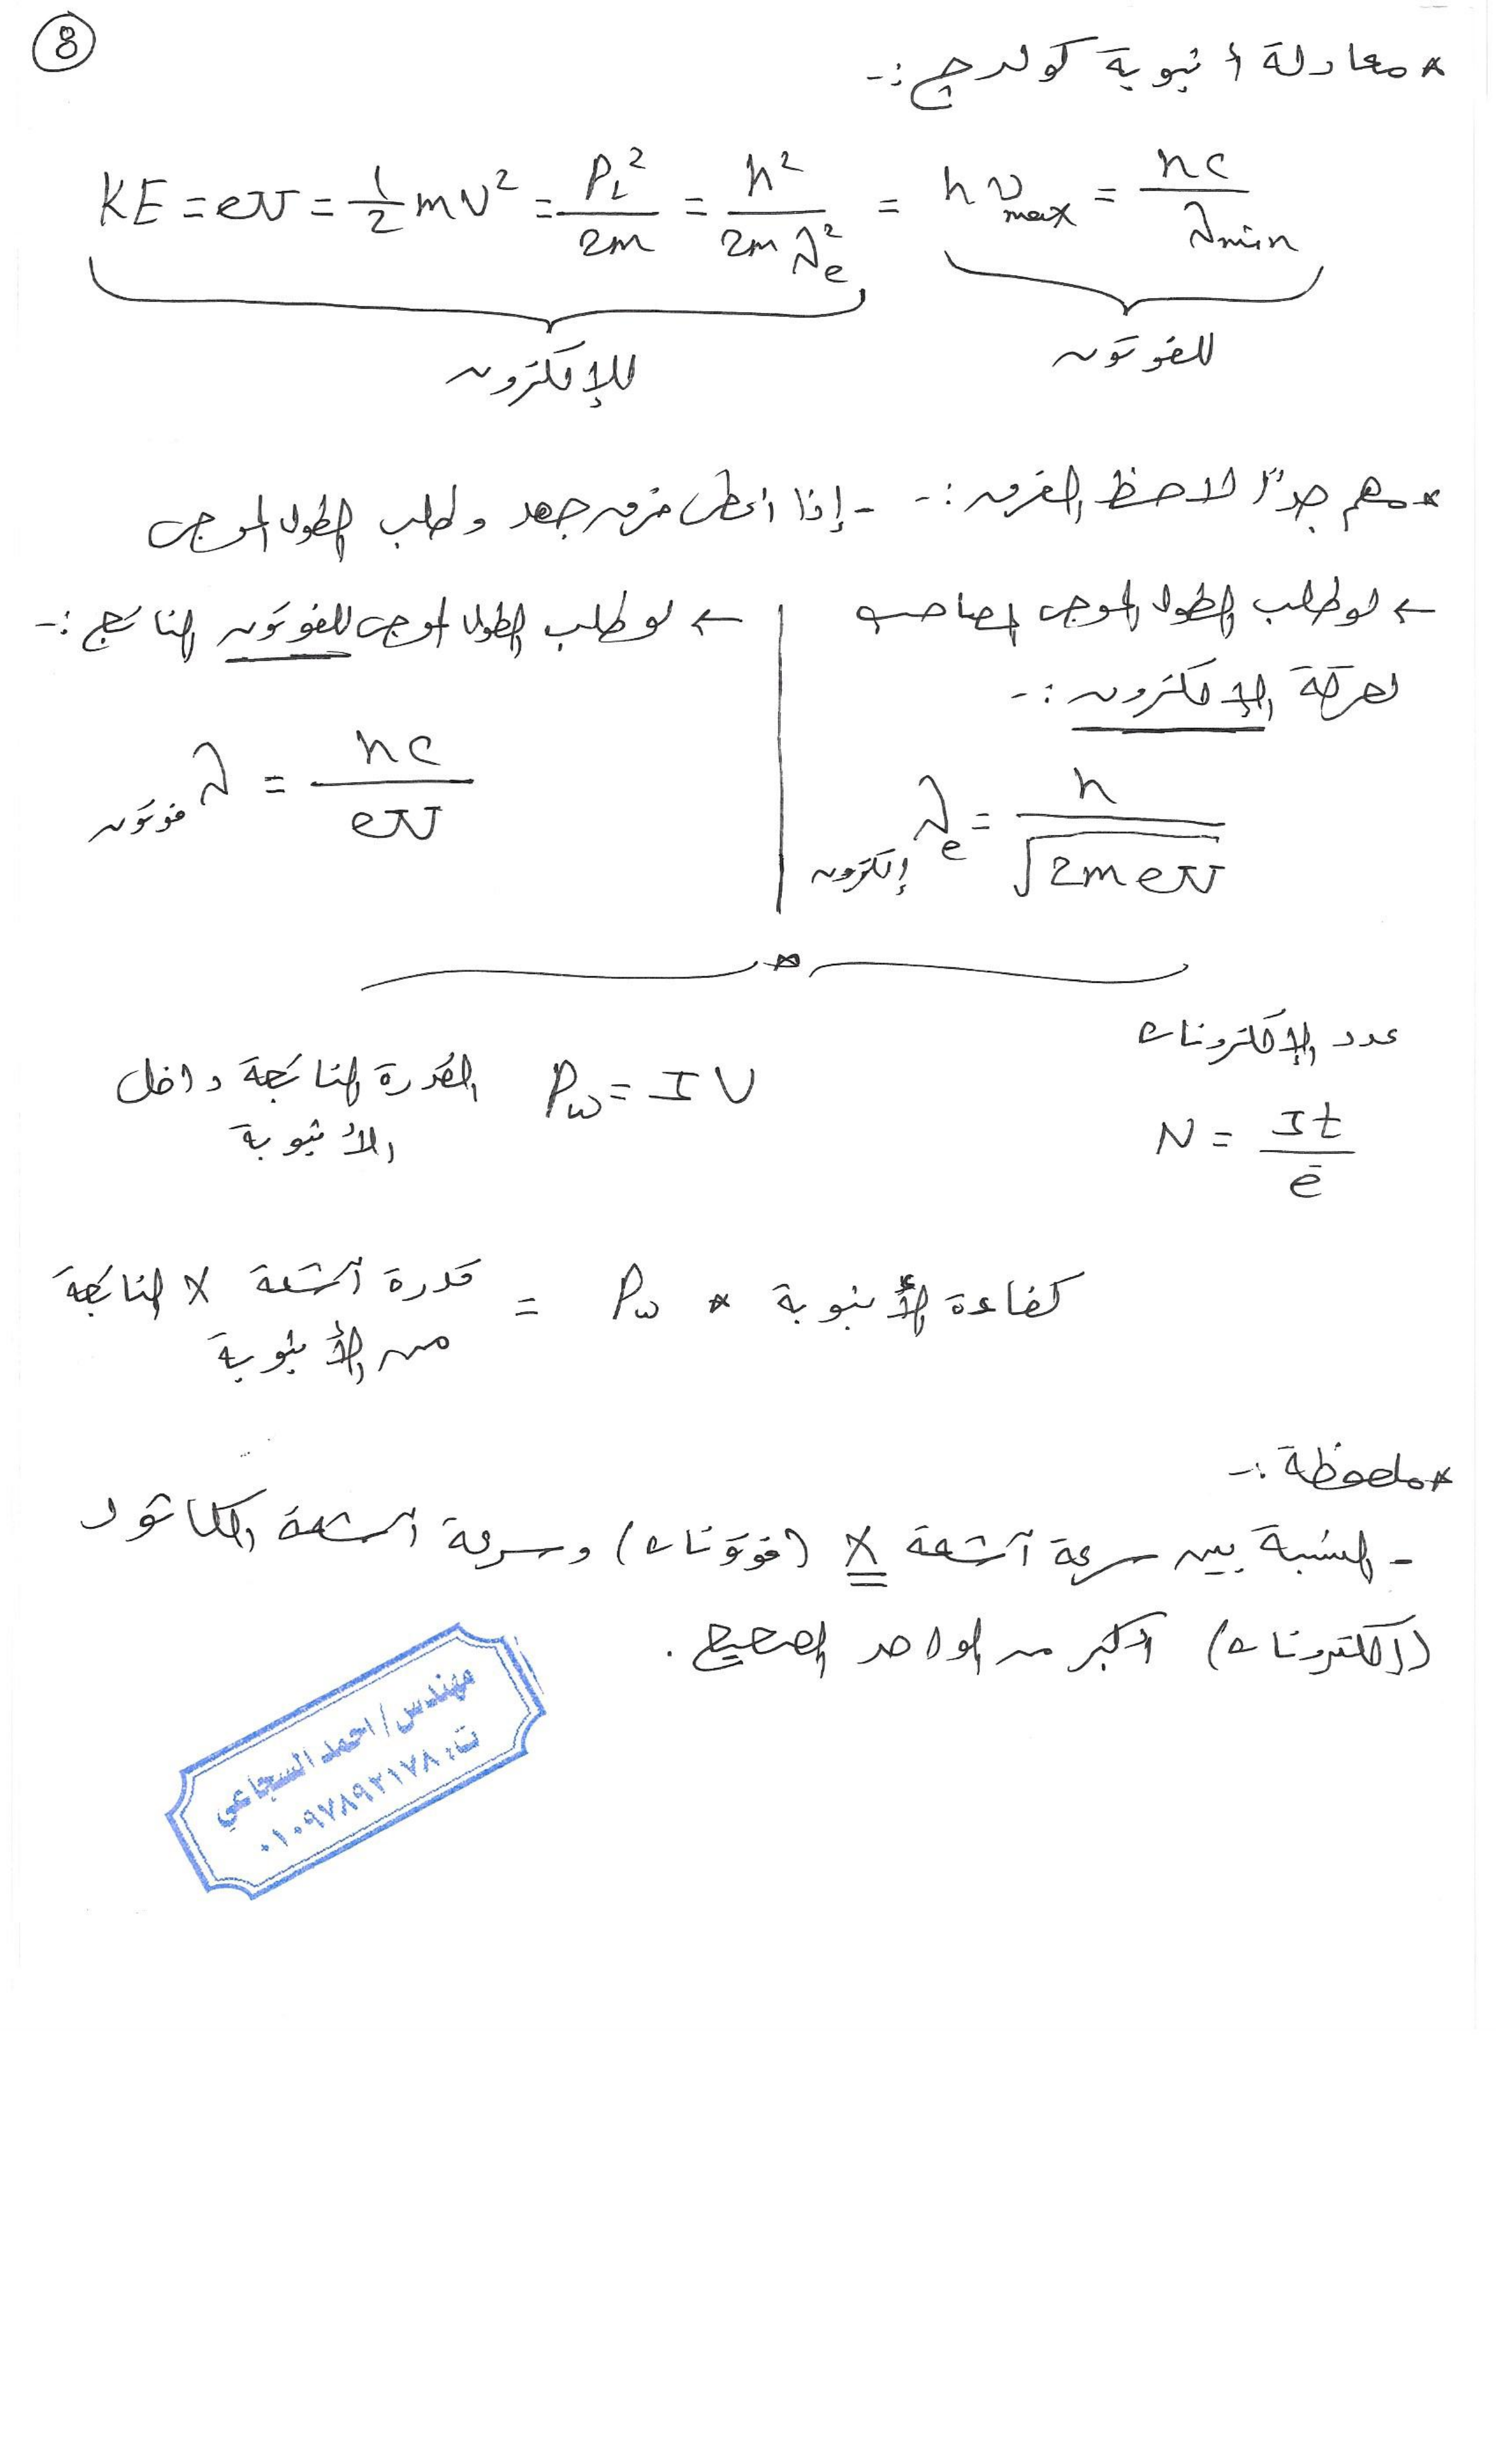 8
* معادلة أنبوبة كولدج :-
KE = eV = 1/2 mv² = P_L²/2m = h²/2mλ_e² = hν_max = hc/λ_min
للإلكترون
للفوتون
* مهم جدًا لاحظ الفرق :- - إذا أعطى فرق جهد وطلب الطول الموجى
← لو طلب الطول الموجى المصاحب
لحركة الإلكترون :-
λ_e إلكترون = h/√(2meV)
← لو طلب الطول الموجى للفوتون الناتج :-
λ فوتون = hc/eV
عدد الإلكترونات
N = It/e⁻
P_w = IV القدرة الناتجة داخل
الأنبوبة
كفاءة الأنبوبة * P_w = قدرة أشعة X الناتجة
من الأنبوبة
* ملحوظة :-
- النسبة بين سرعة أشعة X (فوتونات) وسرعة أشعة الكاثود
(إلكترونات) أكبر من الواحد الصحيح .
مهندس/ احمد السجاعي
ت: ٠١٠٩٧٨٩٢١٧٨